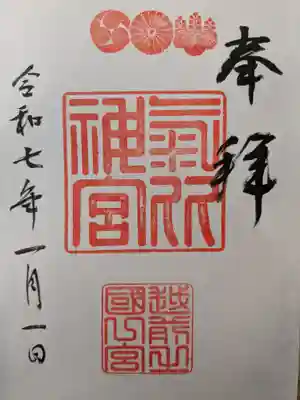 奉拝
氣比
神宮
越前之
國一宮
令和七年一月一日